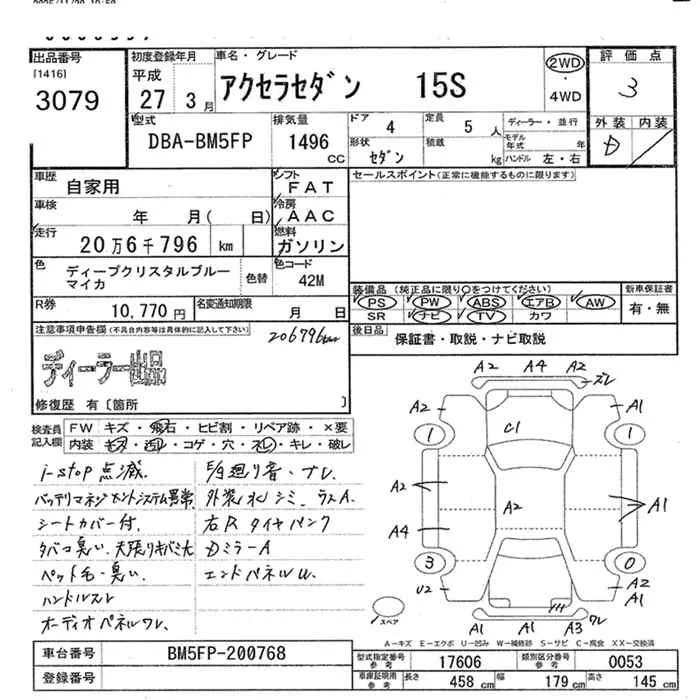 出品番号
[1416]
3079
初度登録年月
平成
27 3月
車名・グレード
アクセラセダン 15S
2WD
・
4WD
評価点
3
外装 内装
D
型式
DBA-BM5FP
排気量
1496
CC
ドア 4
定員 5 人
形状 セダン
積載 kg
ディーラー・並行
モデル年式 年
ハンドル 左・右
車歴
自家用
シフト
FAT
車検
年 月( 日)
冷房
AAC
走行
20万6千796 km
燃料
ガソリン
色
ディープクリスタルブルー
マイカ
色替
色コード
42M
セールスポイント(正常に機能するものに限ります)
装備品 (純正品に限り○をつけてください)
PS PW ABS エアB AW
SR ナビ TV カワ
新車保証書
有・無
R券
10,770円
名変通知期限
月 日
後日品
保証書・取説・ナビ取説
注意事項申告欄(不具合内容等は具体的に記入して下さい)
206796km
ディーラー出品
修復歴 有〔箇所 〕
検査員
記入欄
FW キズ・飛石・ヒビ割・リペア跡・×要
内装 キズ・汚レ・コゲ・穴・スレ・キレ・破レ
i-stop 点滅.
バッテリマネジメントシステム異常
シートカバー付.
タバコ臭い. 天張りキバミ大
ペット毛・臭い.
ハンドルスレ
オーディオパネルワレ.
外装水シミ.
右R タイヤパンク
DミラーA
エンドパネルU.
A2 A4 A2
ズレ
A2 A1
1 C1 1
A2 A2 A1
A4
3 0
U2 A2
A1
ワレ
A1 A1 A3
スペア
A-キズ E-エクボ U-凹み W-補修跡 S-サビ C-腐食 XX-交換済
車台番号
BM5FP-200768
登録番号
型式指定番号
参考
17606
類別区分番号
参考
0053
車庫証明用
参考
長さ 458 cm
幅 179 cm
高さ 145 cm